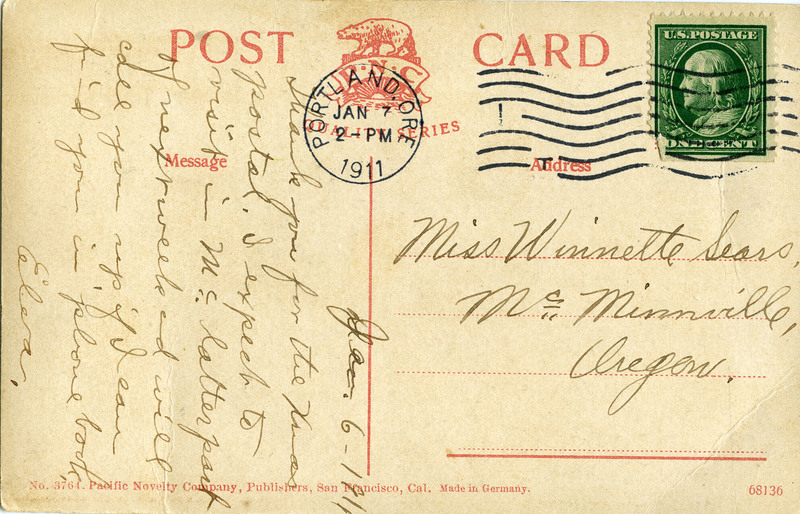 POST CARD
U.S. POSTAGE
ONE CENT
P.N.C.
QUALITY SERIES
PORTLAND, ORE
JAN 7
2-PM
1911
Message
Address
Jan. 6-1911
Thank you for the Xmas
postal. I expect to
visit in Mc. latter part
of next week and will
call you up if I can
find you in phone book,
Miss Winnette Sears,
Mc Minnville,
Oregon.
No. 3764. Pacific Novelty Company, Publishers, San Francisco, Cal. Made in Germany.
68136